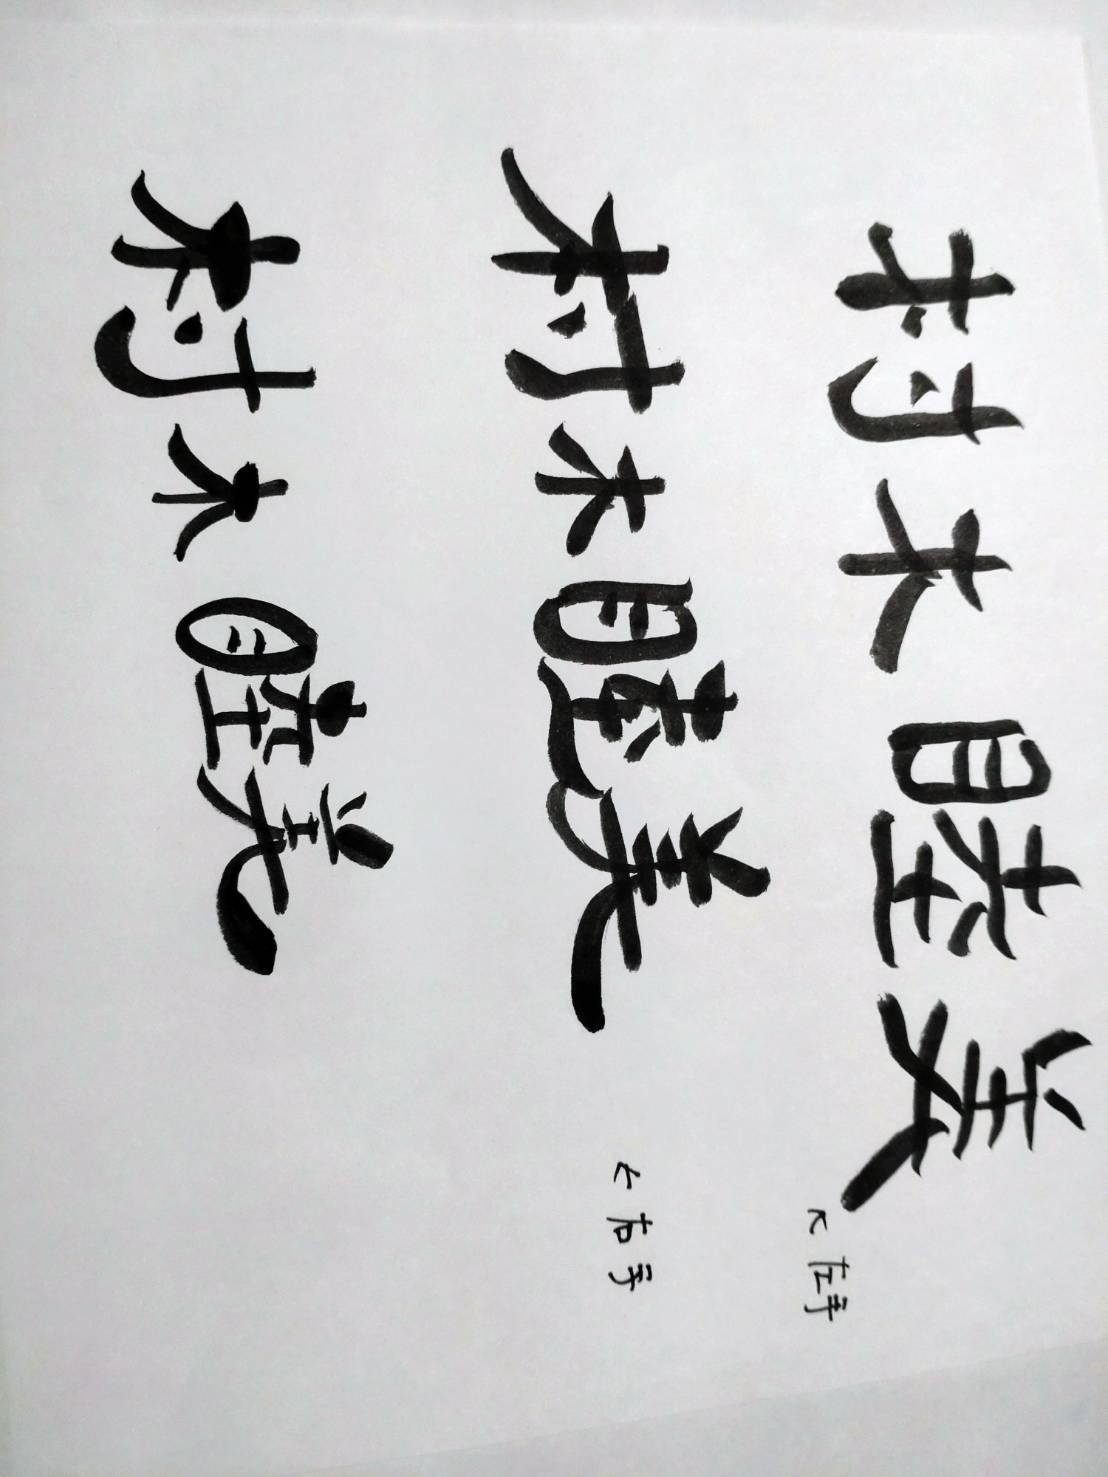 村木睦美
← 左手
村木睦美
← 右手
村木睦美